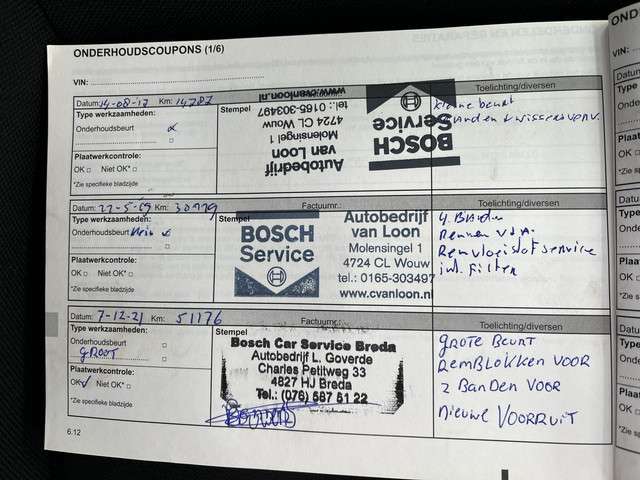 ONDERHOUDSCOUPONS (1/6)
VIN:
Datum: 14-08-17 Km: 14787
Toelichting/diversen
Type werkzaamheden:
Stempel
Onderhoudsbeurt
Plaatwerkcontrole:
OK Niet OK*
*Zie specifieke bladzijde
Autobedrijf
van Loon
Molensingel 1
4724 CL Wouw
tel.: 0165-303497
www.cvanloon.nl
BOSCH
Service
kleine beurt
Datum: Km:
Factuurnr.:
Toelichting/diversen
Type werkzaamheden:
Stempel
Onderhoudsbeurt klein
Plaatwerkcontrole:
OK Niet OK*
*Zie specifieke bladzijde
BOSCH
Service
Autobedrijf
van Loon
Molensingel 1
4724 CL Wouw
tel.: 0165-303497
www.cvanloon.nl
4 Banden
Remmen
Remvloeistof service
Filter
Datum: 7-12-21 Km: 51176
Factuurnr.:
Toelichting/diversen
Type werkzaamheden:
Stempel
Onderhoudsbeurt
GROOT
Plaatwerkcontrole:
OK Niet OK*
*Zie specifieke bladzijde
Bosch Car Service Breda
Autobedrijf L. Goverde
Charles Petitweg 33
4827 HJ Breda
Tel.: (076) 587 51 22
GROTE BEURT
REMBLOKKEN VOOR
2 BANDEN VOOR
NIEUWE VOORRUIT
6.12